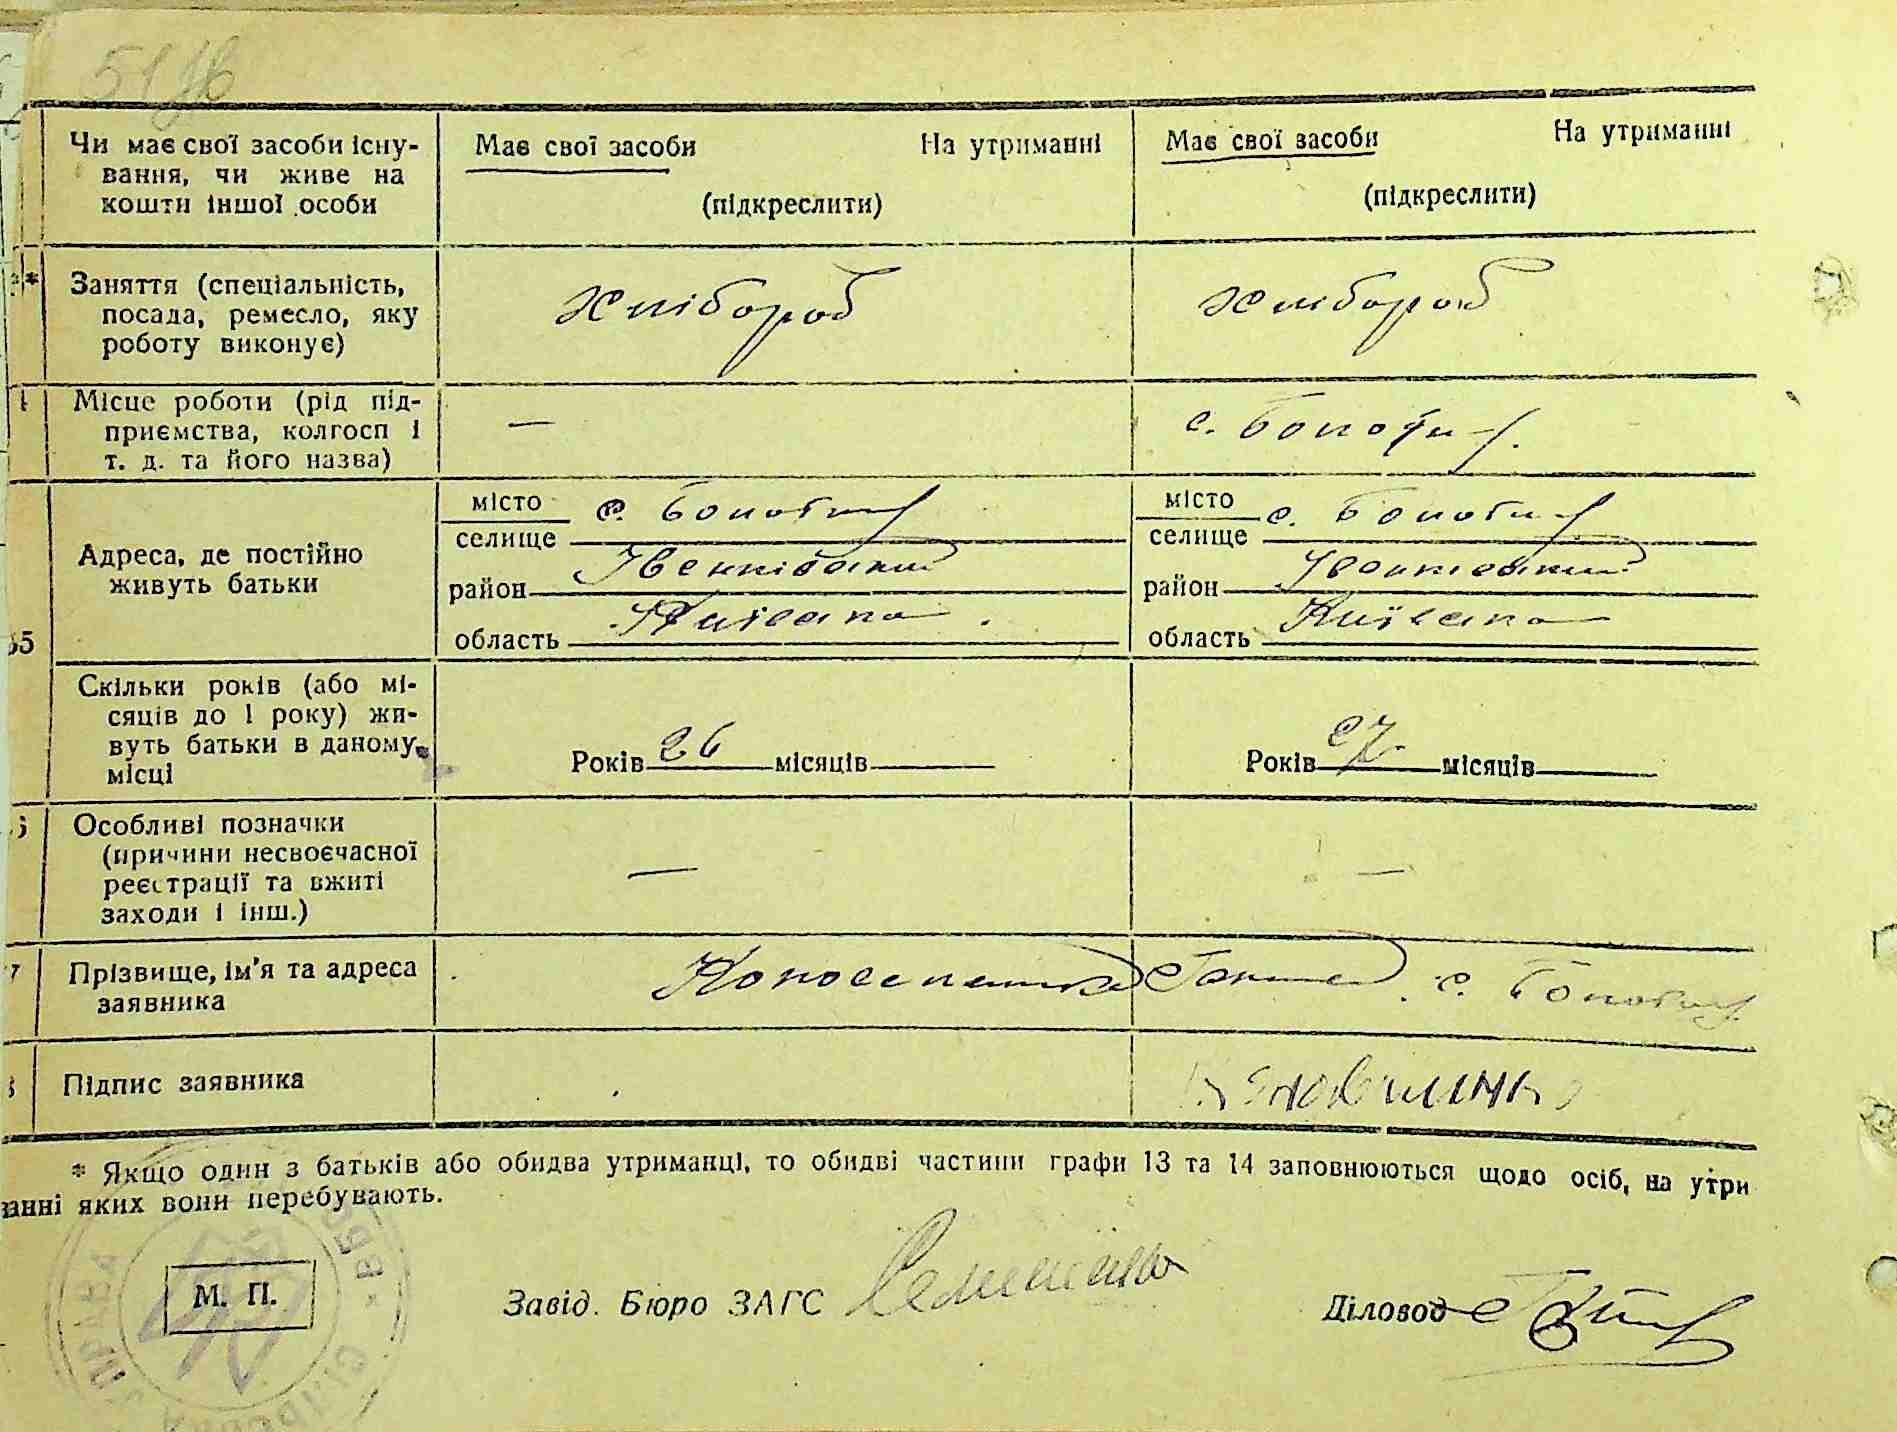 51
Чи має свої засоби існу-
вання, чи живе на
кошти іншої особи
Має свої засоби На утриманні
(підкреслити)
Має свої засоби На утриманні
(підкреслити)
Заняття (спеціальність,
посада, ремесло, яку
роботу виконує)
Хлібороб
Хлібороб
Місце роботи (рід під-
приємства, колгосп і
т. д. та його назва)
—
с. Болотня
Адреса, де постійно
живуть батьки
місто
селище с. Болотня
район Іванківський
область Київська
місто
селище с. Болотня
район Іванківський
область Київська
65
Скільки років (або мі-
сяців до 1 року) жи-
вуть батьки в даному
місці
Років 26 місяців
Років 27 місяців
Особливі позначки
(причини несвоєчасної
реєстрації та вжиті
заходи і інш.)
—
—
7
Прізвище, ім'я та адреса
заявника
с. Болотня
Підпис заявника
* Якщо один з батьків або обидва утриманці, то обидві частини графи 13 та 14 заповнюються щодо осіб, на утри
манні яких вони перебувають.
М. П.
Завід. Бюро ЗАГС
Діловод